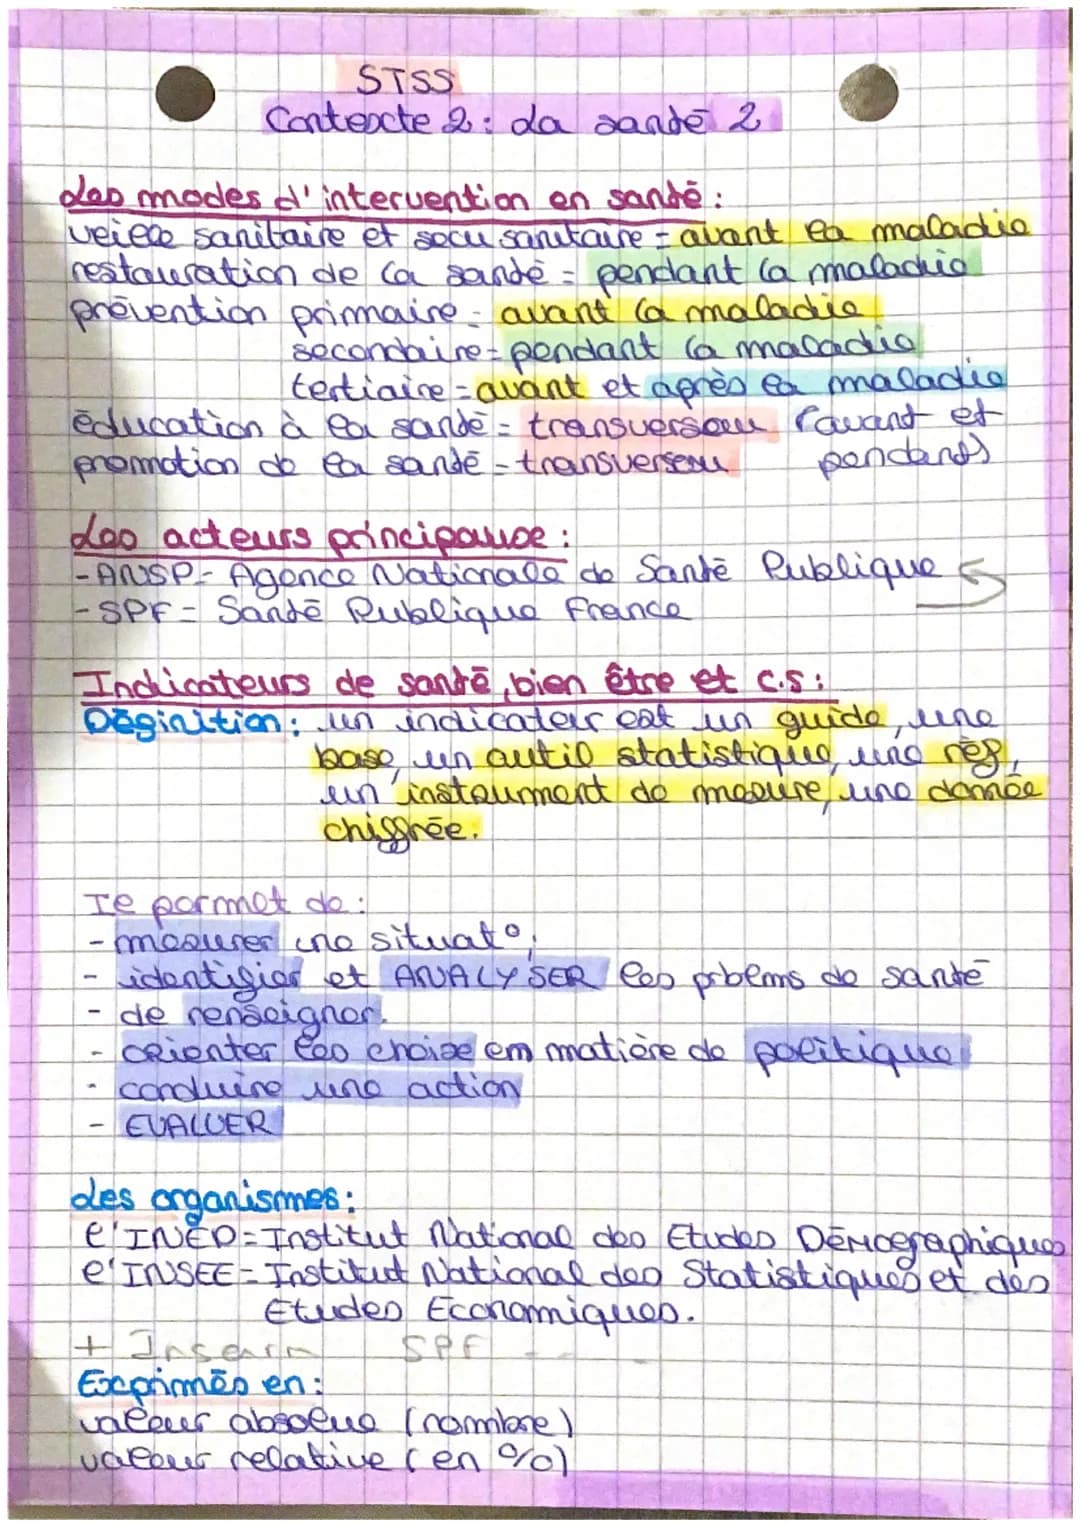 STSS
Contexte 2 : La santé 2
Les modes d'intervention en santé :
veille sanitaire et secu sanitaire = avant la maladie
restauration de la santé = pendant la maladie
prévention primaire = avant la maladie
secondaire = pendant la maladie
tertiaire = avant et après la maladie
éducation à la santé = transversau (avant et
promotion de la santé = transversau pendant)
Les acteurs principaux :
- ANSP = Agence Nationale de Santé Publique
- SPF = Santé Publique France
Indicateurs de santé, bien être et c.s :
Définition : un indicateur est un guide, une
base, un outil statistique, une réf,
un instrument de mesure, une donnée
chiffrée.
Il permet de :
- mesurer une situat°,
- identifier et ANALYSER les prblems de santé
- de renseigner.
- orienter les choix em matière de politique
- conduire une action
- EVALUER
Les organismes :
l'INED = Institut National des Etudes Démographiques
l'INSEE = Institut National des Statistiques et des
Etudes Economiques.
+ Inserm SPF --
Exprimés en :
valeur absolue (nombre)
valeur relative (en %)